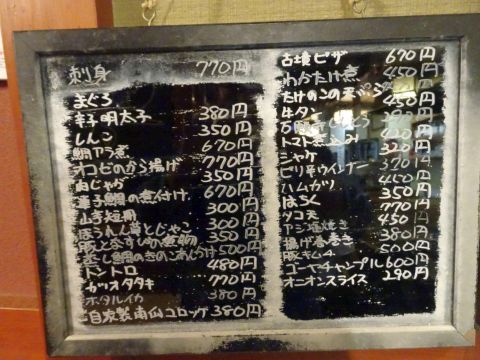 刺身 770円
まぐろ
辛子明太子 380円
しんこ 350円
鯛アラ煮 670円
オコゼのから揚げ 770円
肉じゃが 350円
連子鯛の煮付け 670円
山芋短冊 300円
ほうれん草とじゃこ 300円
豚と 煮物 350円
蒸し鯛のきのこあんかけ 500円
トントロ 480円
カツオタタキ 770円
ホタルイカ 380円
自家製南仙コロッケ 380円
古墳ピザ 670円
わかたけ煮 450円
たけのこの天ぷら 450円
牛タン 450円
トマト煮込み 320円
シャケ 320円
ピリ辛ウインナー 370円
ハムカツ 450円
はちく 350円
タコ天 770円
アジ塩焼き 450円
揚げ春巻き 380円
豚キムチ 500円
ゴーヤチャンプル 600円
オニオンスライス 290円